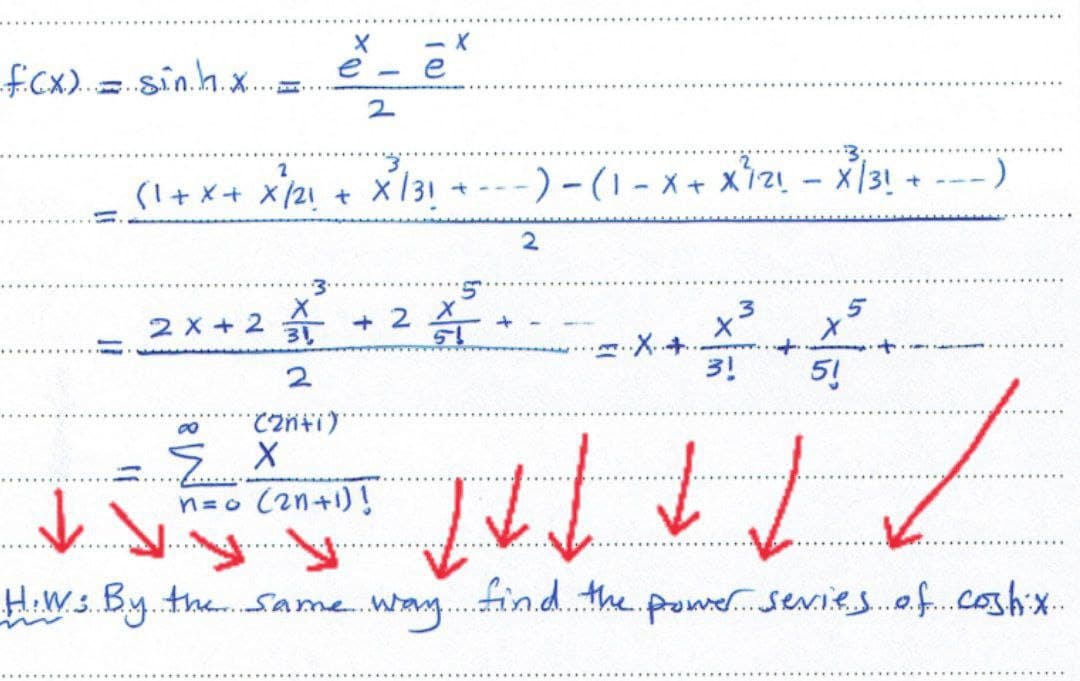 f(x) = sinh x = (e^x - e^-x)/2
= ((1 + x + x^2/2! + x^3/3! + ----) - (1 - x + x^2/2! - x^3/3! + ----))/2
= (2x + 2 x^3/3! + 2 x^5/5! + - --)/2 = x + x^3/3! + x^5/5! + - ---
= ∑_{n=0}^{∞} x^(2n+1)/(2n+1)!
H.W: By the same way find the power series of cosh x